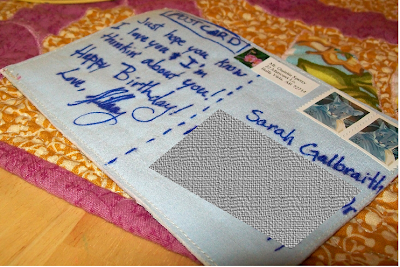 POSTCARD
Just hope you know
I love you & I'm
thinkin' about you!
Happy Birthday!
Love,
Sarah Galbraith